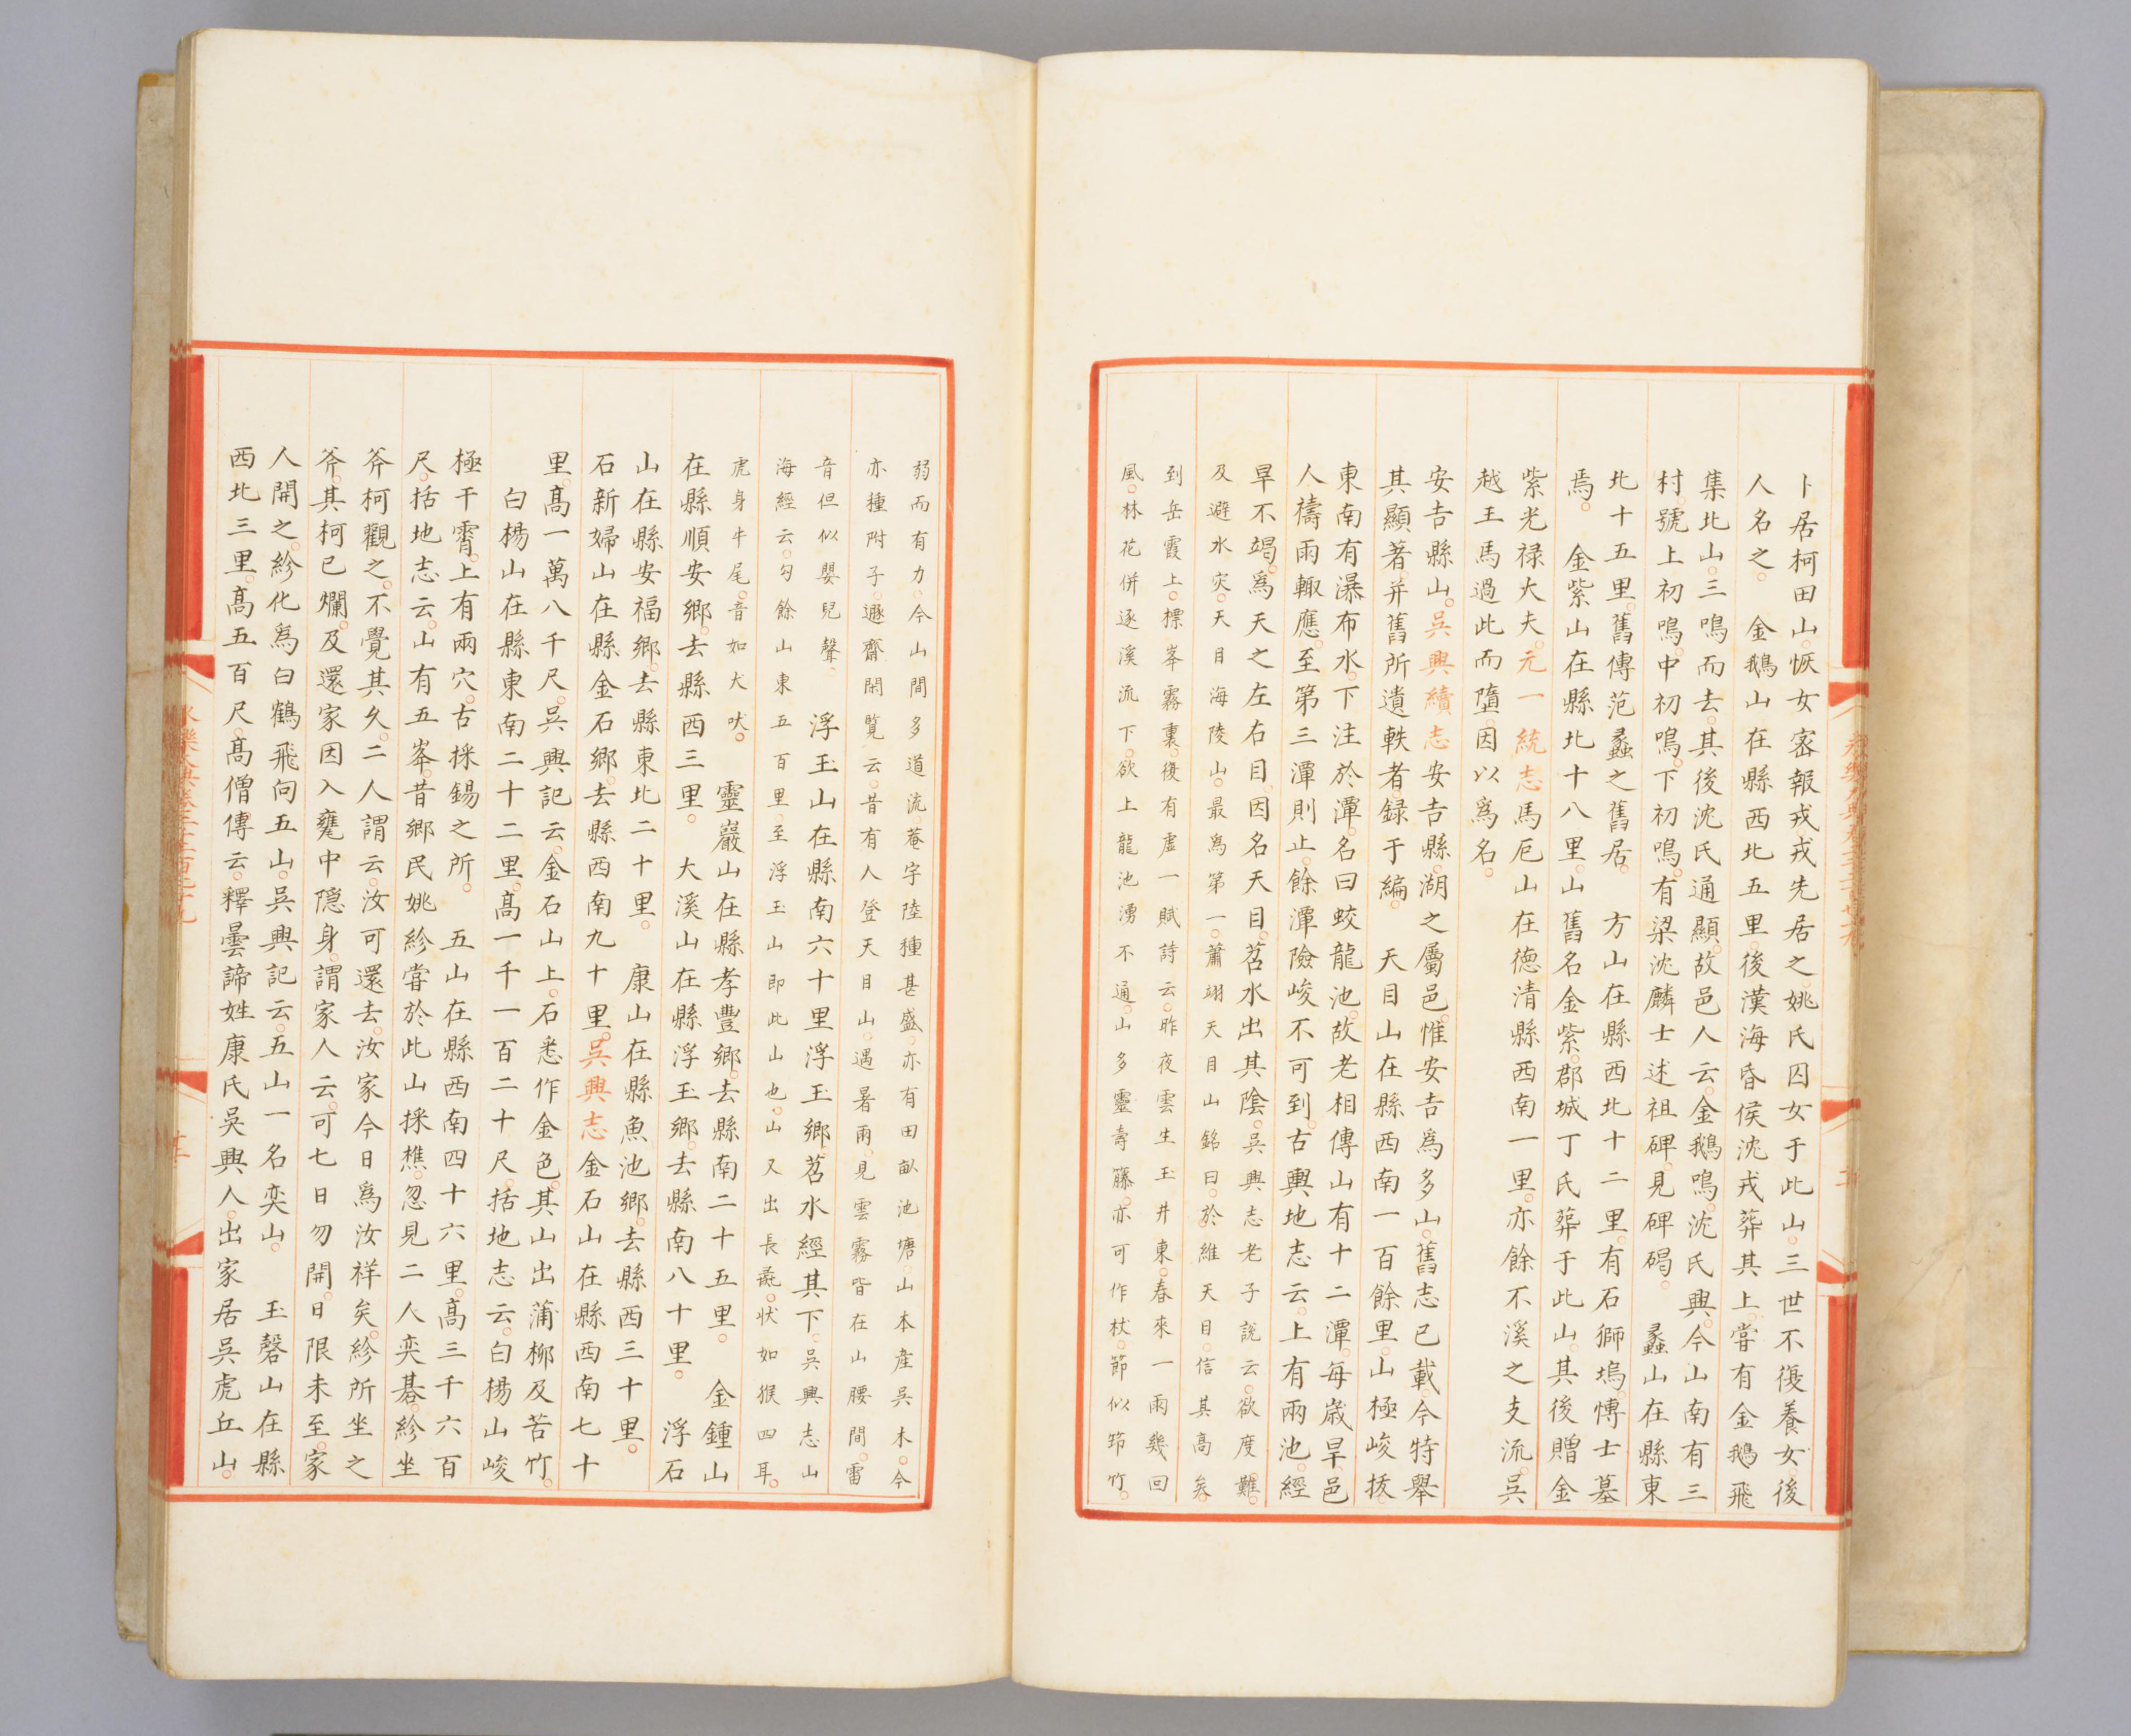 卜居柯田山。恢女密報戎。戎先居之。姚氏囚女于此山。三世不復養女。後
人名之。　金鵝山在縣西北五里。後漢海昏侯沈戎葬其上。嘗有金鵝飛
集北山。三鳴而去。其後沈氏通顯。故邑人云。金鵝鳴。沈氏興。今山南有三
村。號上初鳴。中初鳴。下初鳴。有梁沈麟士述祖碑。見碑碣。　蠡山在縣東
北十五里。舊傳范蠡之舊居。　方山在縣西北十二里。有石獅塢。愽士墓
焉。　金紫山在縣北十八里。山舊名金紫。郡城丁氏葬于此山。其後贈金
紫光禄大夫。元一統志馬厄山在德清縣西南一里。亦餘不溪之支流。吳
越王馬過此而墮。因以爲名。
安吉縣山。吳興續志安吉縣。湖之屬邑。惟安吉爲多山。舊志已載。今特舉
其顯著。并舊所遺軼者。録于編。　天目山在縣西南一百餘里。山極峻拔。
東南有瀑布水。下注於潭。名曰蛟龍池。故老相傳山有十二潭。每歲旱。邑
人禱雨輒應。至第三潭則止。餘潭險峻不可到。古輿地志云。上有兩池。經
旱不竭。爲天之左右目。因名天目。苕水出其陰。吳興志老子說云。欲度難。
及避水灾。天目海陵山。最爲第一。蕭翊天目山銘曰。於維天目。信其高矣。
到岳霞上。標峯霧裏。復有虛一賦詩云。昨夜雲生玉井東。春來一雨幾回
風。林花併逐溪流下。欲上龍池湧不通。山多靈壽籐。亦可作杖。節似筇竹。
弱而有力。今山間多道流。菴宇陸種甚盛。亦有田畝池塘。山本産吳木。今
亦種附子。遯齋閑覽云。昔有人登天目山。遇暑雨。見雲霧皆在山腰間。雷
音但似嬰兒聲。　浮玉山在縣南六十里浮玉鄉。苕水經其下。吳興志山
海經云。勾餘山東五百里。至浮玉山即此山也。山又出長彘。状如猴四耳。
虎身牛尾。音如犬吠。　靈巖山在縣孝豐鄉。去縣南二十五里。　金鍾山
在縣順安鄉。去縣西三里。　大溪山在縣浮玉鄉。去縣南八十里。　浮石
山在縣安福鄉。去縣東北二十里。　康山在縣魚池鄉。去縣西三十里。
石新婦山在縣金石鄉。去縣西南九十里。吳興志金石山在縣西南七十
里。高一萬八千尺。吳興記云。金石山上。石悉作金色。其山出蒲柳及苦竹。
白楊山在縣東南二十二里。高一千一百二十尺。括地志云。白楊山峻
極干霄。上有兩穴。古採錫之所。　五山在縣西南四十六里。高三千六百
尺。括地志云。山有五峯。昔鄉民姚紾嘗於此山採樵。忽見二人奕碁。紾坐
斧柯觀之。不覺其久。二人謂云。汝可還去。汝家今日爲汝祥矣。紾所坐之
斧。其柯已爛。及還家因入甕中隱身。謂家人云。可七日勿開。日限未至。家
人開之。紾化爲白鶴飛向五山。吳興記云。五山一名奕山。　玉磬山在縣
西北三里。高五百尺。高僧傳云。釋曇諦姓康氏吳興人。出家居吳虎丘山。